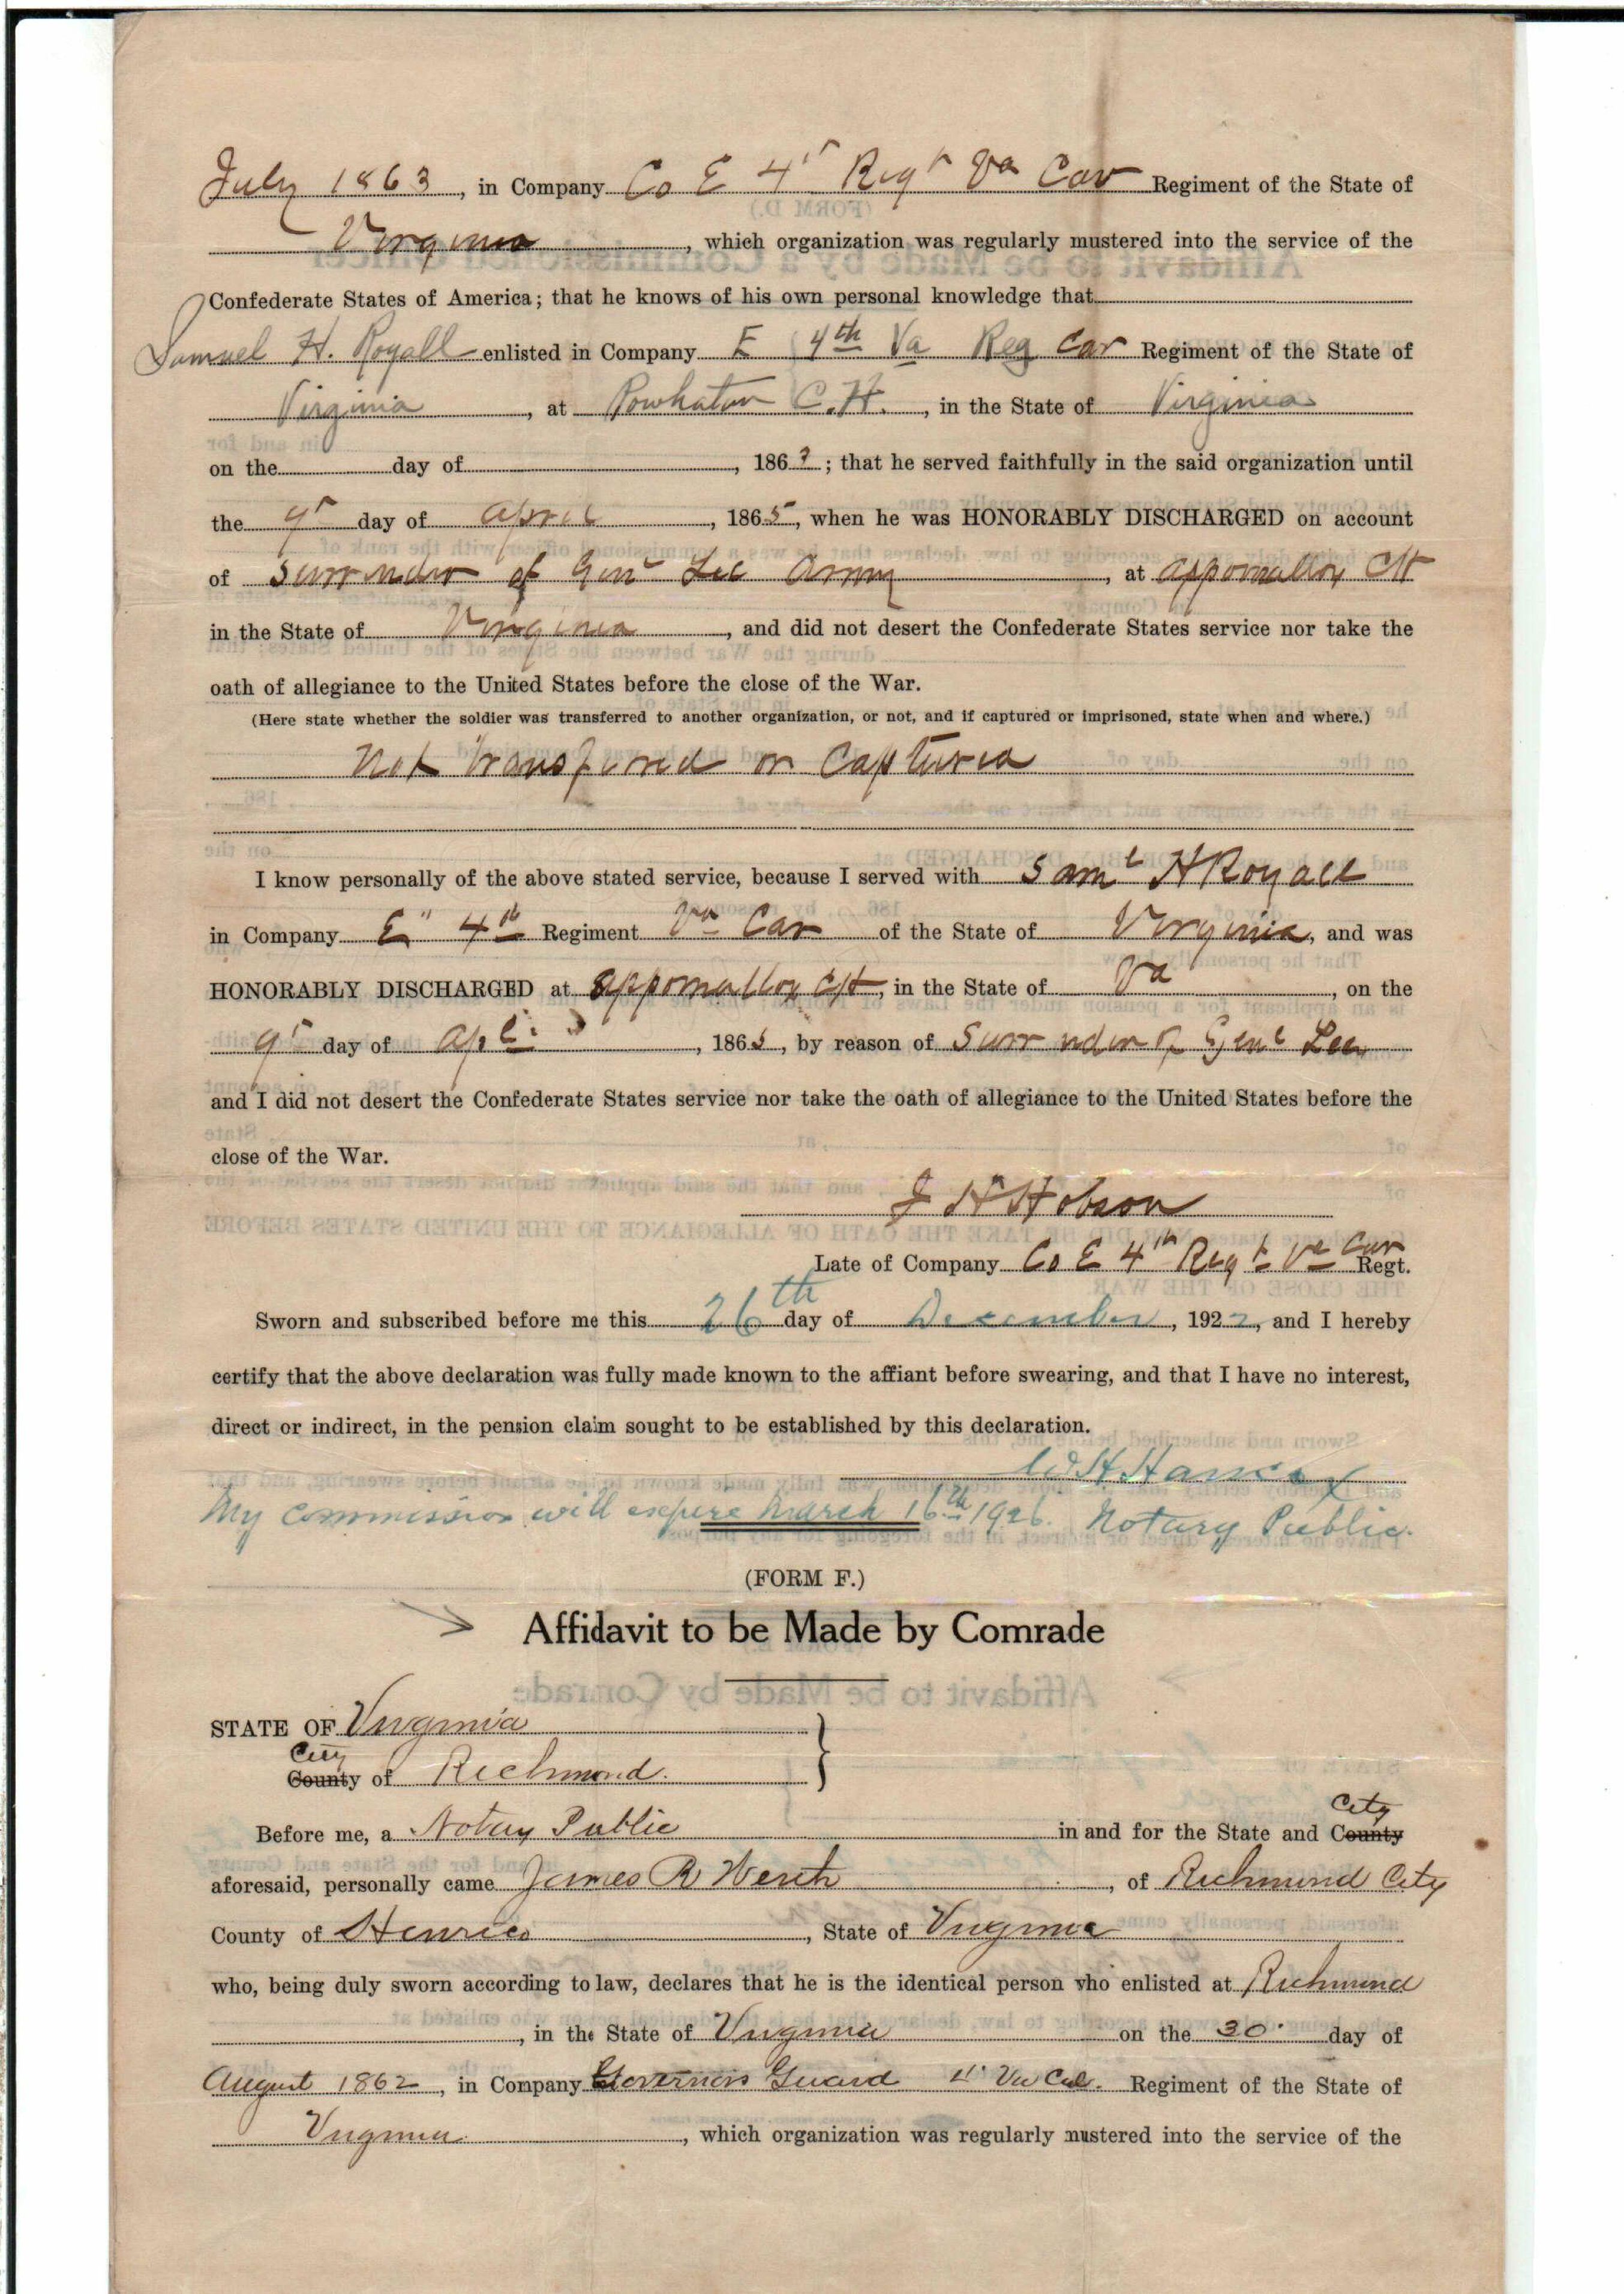 July 1863, in Company Co E 4th Regt Va Cav Regiment of the State of
Virginia, which organization was regularly mustered into the service of the
Confederate States of America; that he knows of his own personal knowledge that
Samuel H. Royall enlisted in Company E 4th Va Reg Cav Regiment of the State of
Virginia, at Powhatan C.H., in the State of Virginia
on the day of , 186?; that he served faithfully in the said organization until
the 9th day of April, 1865, when he was HONORABLY DISCHARGED on account
of Surrender of Genl Lee Army, at Appomattox CH
in the State of Virginia, and did not desert the Confederate States service nor take the
oath of allegiance to the United States before the close of the War.
(Here state whether the soldier was transferred to another organization, or not, and if captured or imprisoned, state when and where.)
Not transferred or Captured
I know personally of the above stated service, because I served with Saml H Royall
in Company E" 4th Regiment Va Cav of the State of Virginia, and was
HONORABLY DISCHARGED at Appomattox CH, in the State of Va, on the
9th day of Apl:, 1865, by reason of Surrender of Genl Lee
and I did not desert the Confederate States service nor take the oath of allegiance to the United States before the
close of the War.
J H Hobson
Late of Company Co E 4th Regt Va Cav Regt.
Sworn and subscribed before me this 26th day of December, 1922, and I hereby
certify that the above declaration was fully made known to the affiant before swearing, and that I have no interest,
direct or indirect, in the pension claim sought to be established by this declaration.
W H
My commission will expire March 16th 1926. Notary Public.
(FORM F.)
Affidavit to be Made by Comrade
STATE OF Virginia
City
County of Richmond.
City
Before me, a Notary Public in and for the State and County
aforesaid, personally came James R Werth, of Richmond City
County of Henrico, State of Virginia
who, being duly sworn according to law, declares that he is the identical person who enlisted at Richmond
, in the State of Virginia on the 30 day of
August 1862, in Company Governors Guard 4' Va Cal. Regiment of the State of
Virginia, which organization was regularly mustered into the service of the